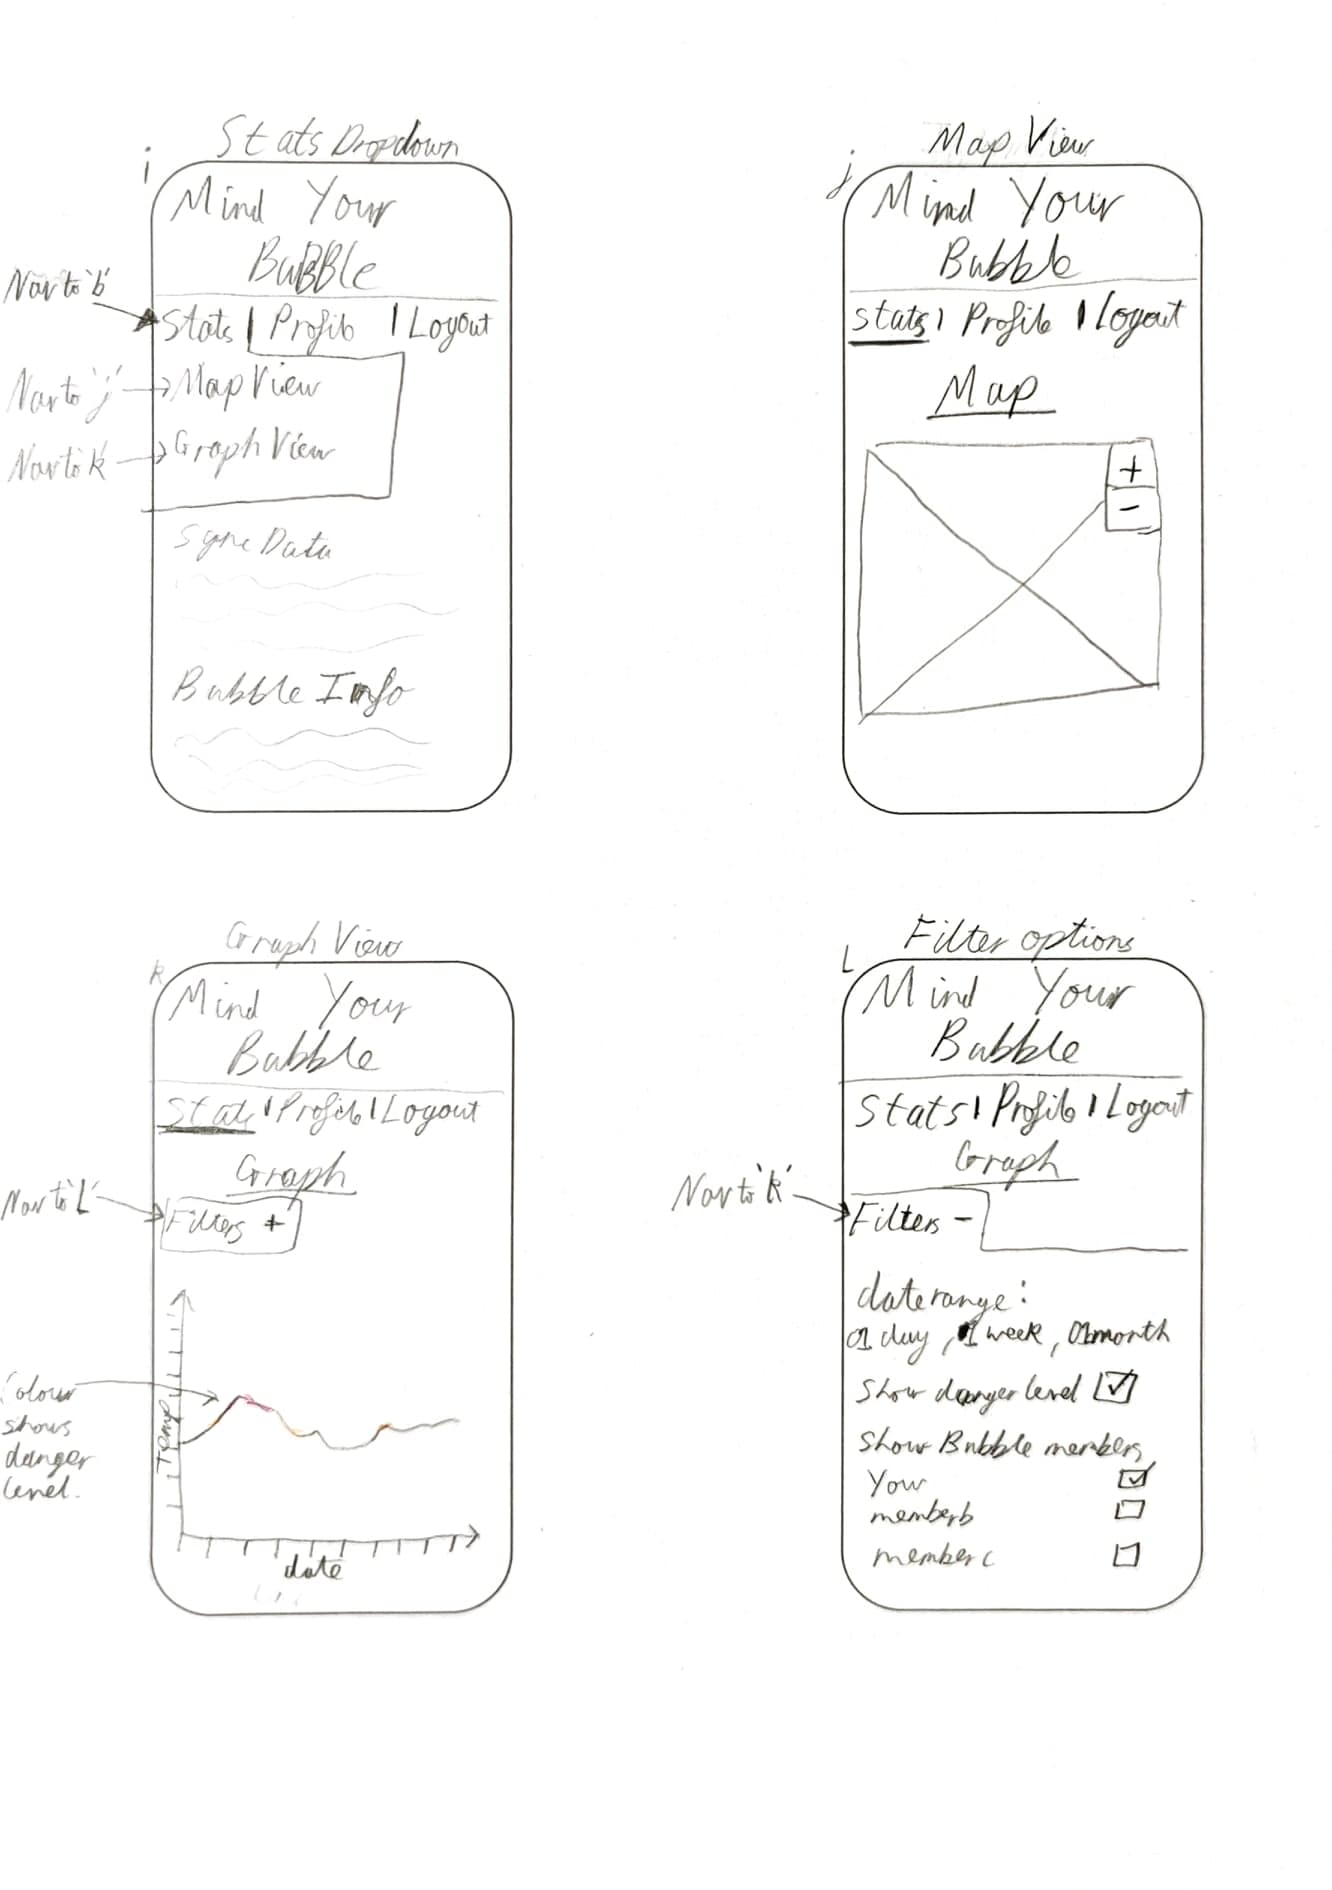 Stats Dropdown
i
Mind Your
BuBBle
Nav to 'b'
Stats | Profile | Logout
Nav to 'j'
Map View
Nav to k
Graph View
Sync Data
Bubble Info
Map View
j
Mind Your
Bubble
Stats | Profile | Logout
Map
+
-
Graph View
k
Mind Your
Bubble
Stats | Profile | Logout
Graph
Nav to 'L'
Filters +
Colour
shows
danger
level.
Temp
date
Filter options
L
Mind Your
Bubble
Stats | Profile | Logout
Graph
Nav to 'k'
Filters -
date range:
1 day, 1 week, 1 month
Show danger level
Show Bubble members
You
member b
member c